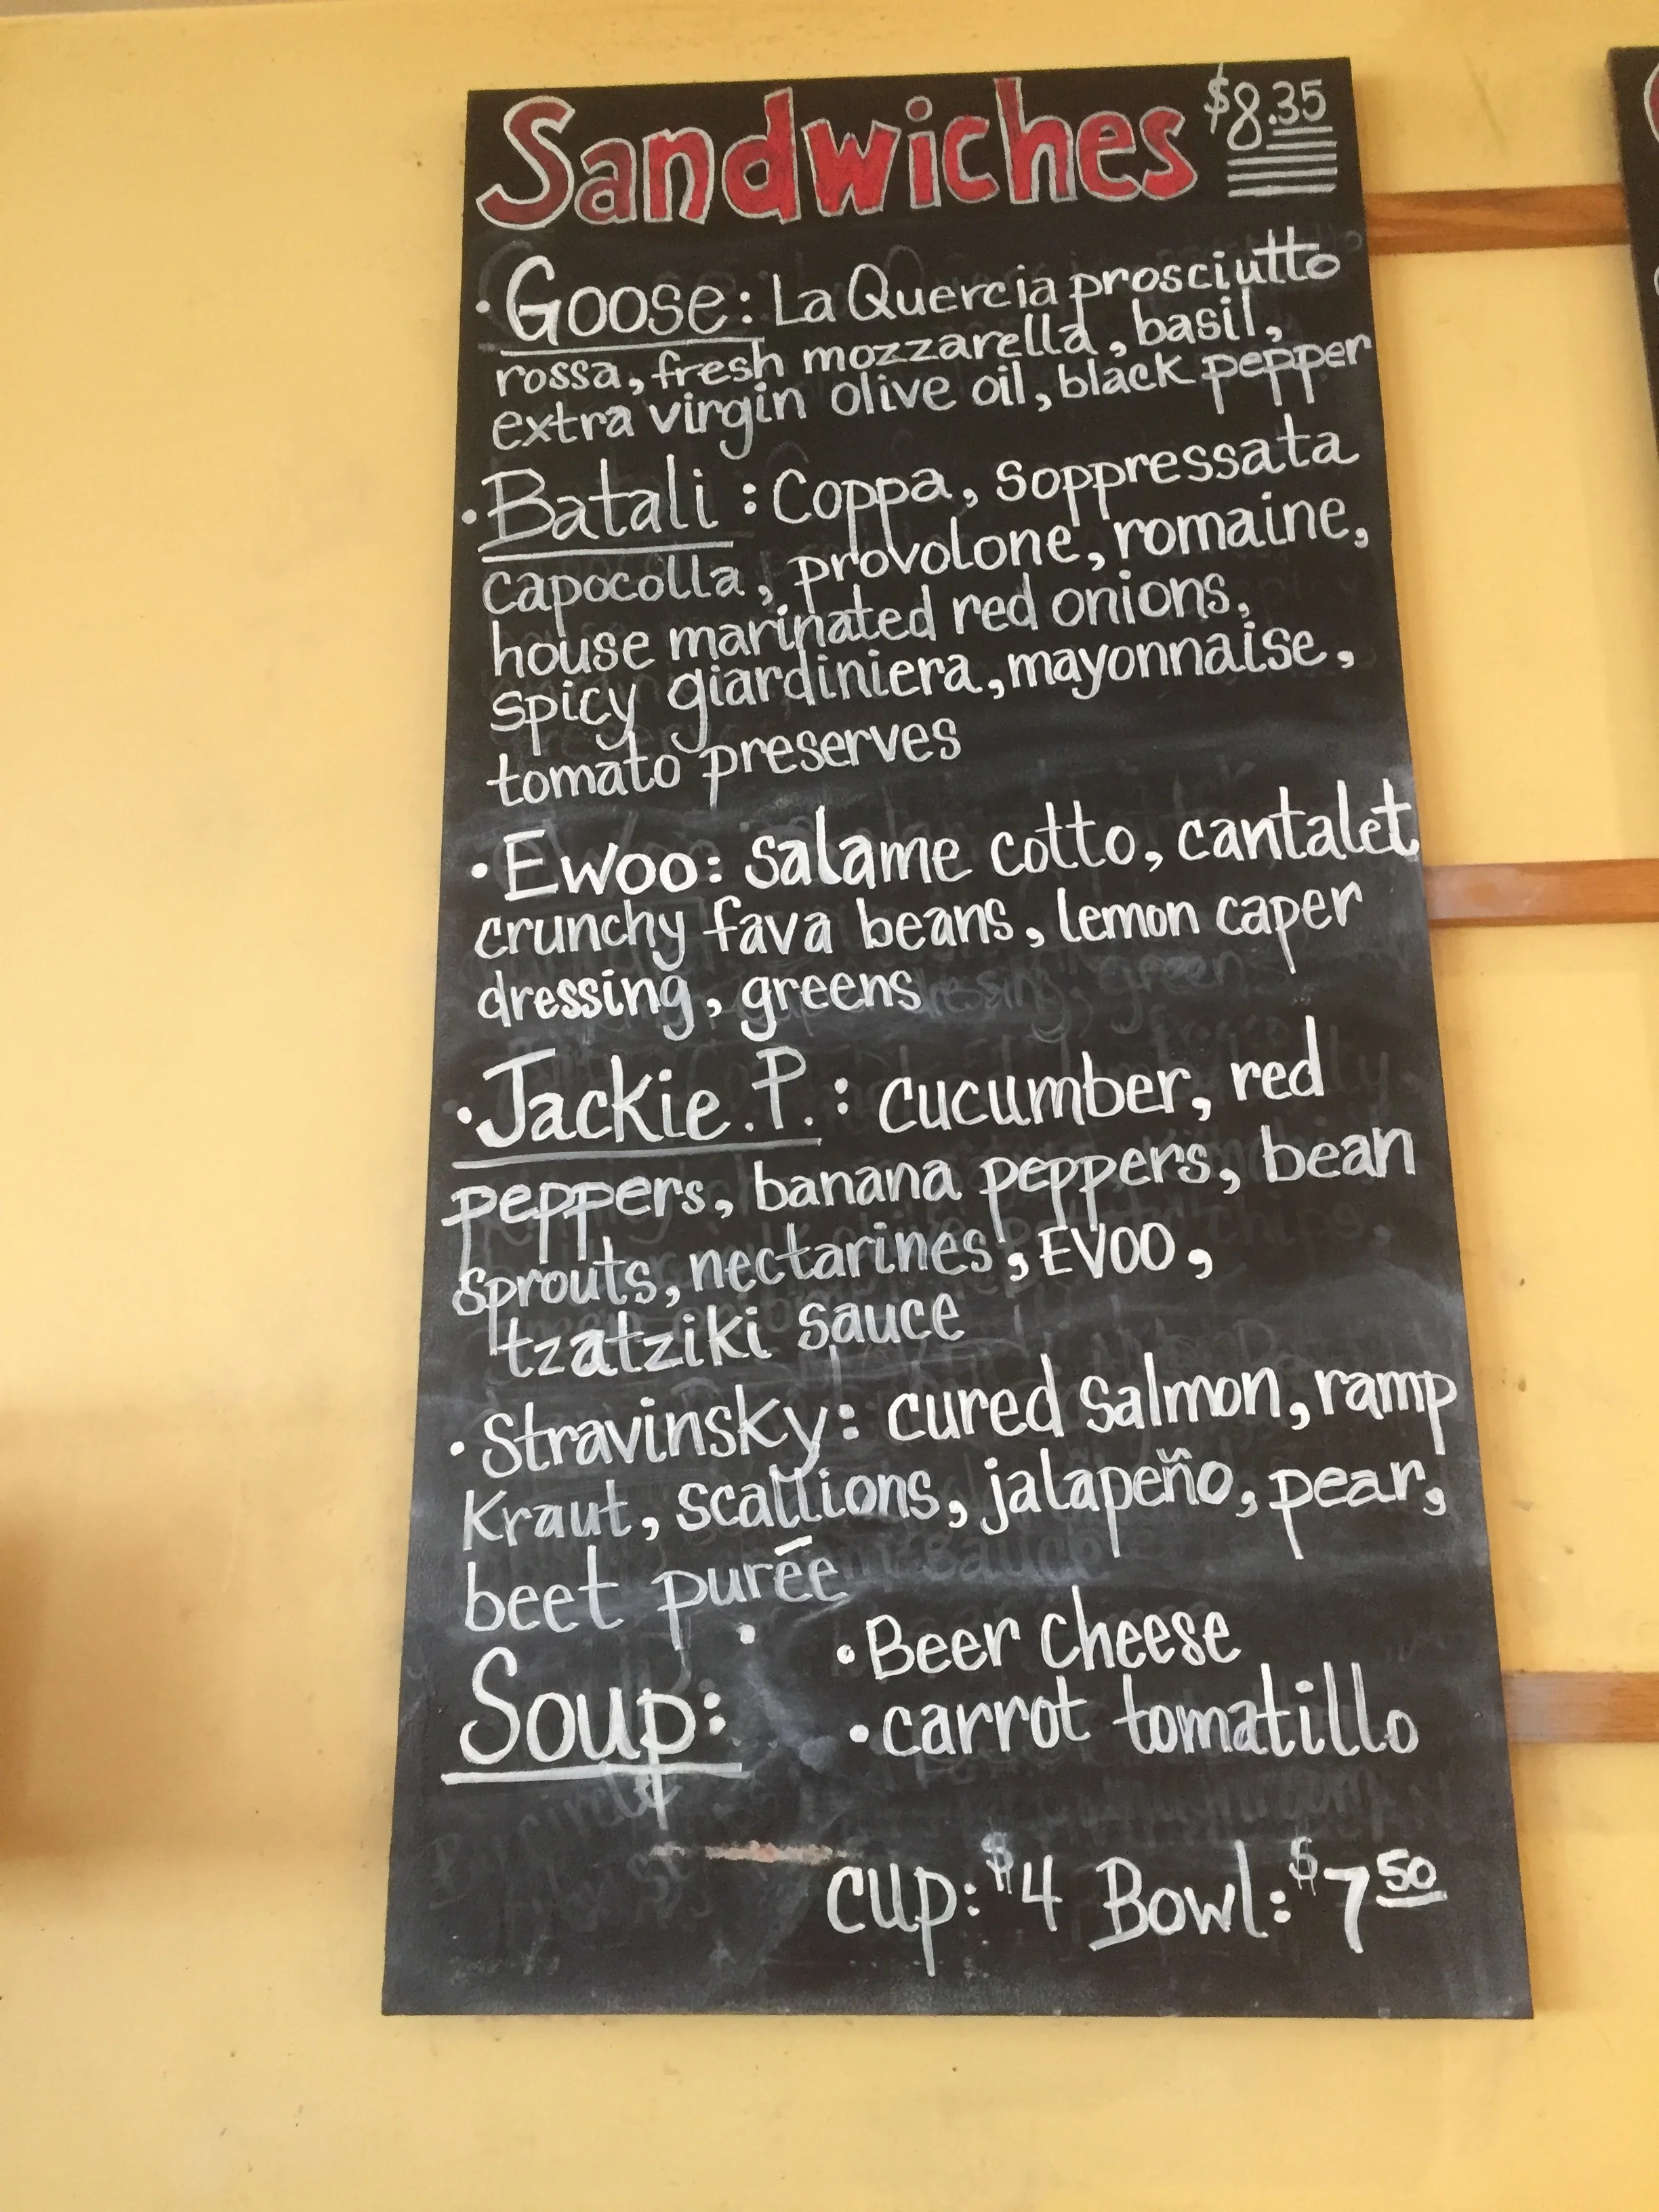 Sandwiches $8.35
• Goose: La Quercia prosciutto
rossa, fresh mozzarella, basil,
extra virgin olive oil, black pepper
• Batali: Coppa, soppressata
capocolla, provolone, romaine,
house marinated red onions,
spicy giardiniera, mayonnaise,
tomato preserves
• Ewoo: salame cotto, cantalet
crunchy fava beans, lemon caper
dressing, greens
• Jackie. P. : cucumber, red
peppers, banana peppers, bean
sprouts, nectarines, EVOO,
tzatziki sauce
• Stravinsky: cured salmon, ramp
Kraut, scallions, jalapeño, pear,
beet purēe
Soup: • Beer cheese
• carrot tomatillo
cup: $4 Bowl: $7 50